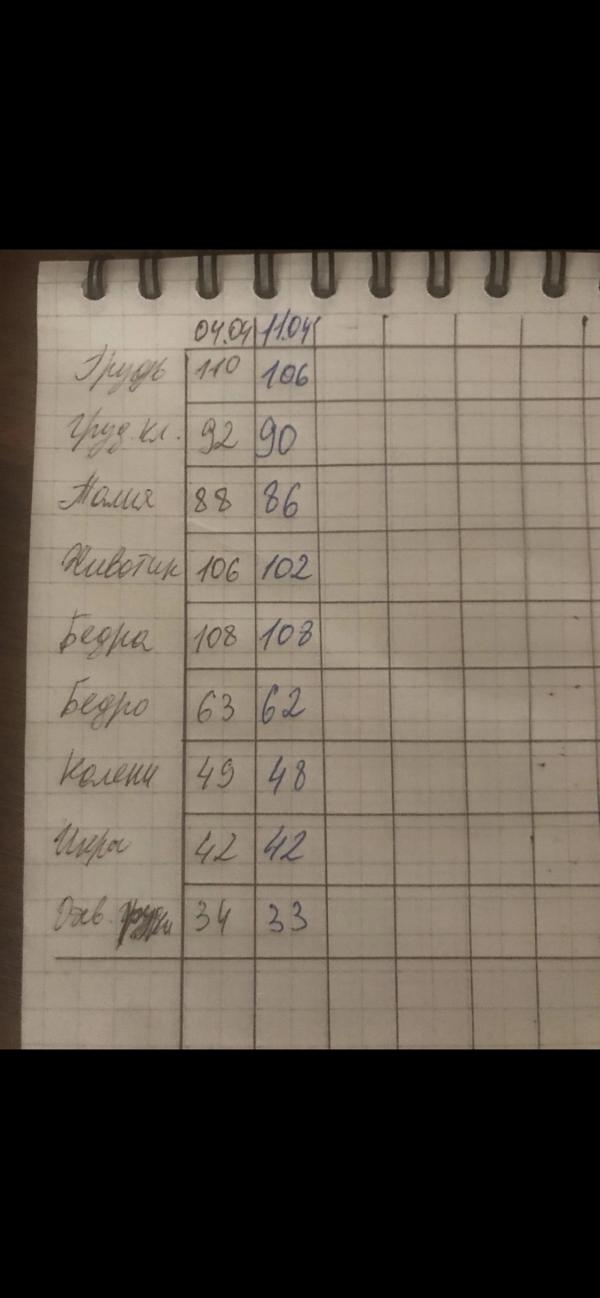 04.04 11.04
Грудь 110 106
Груд. кл. 92 90
Талия 88 86
Животик 106 102
Бедра 108 108
Бедро 63 62
Колени 49 48
Икра 42 42
Обхв. руки 34 33